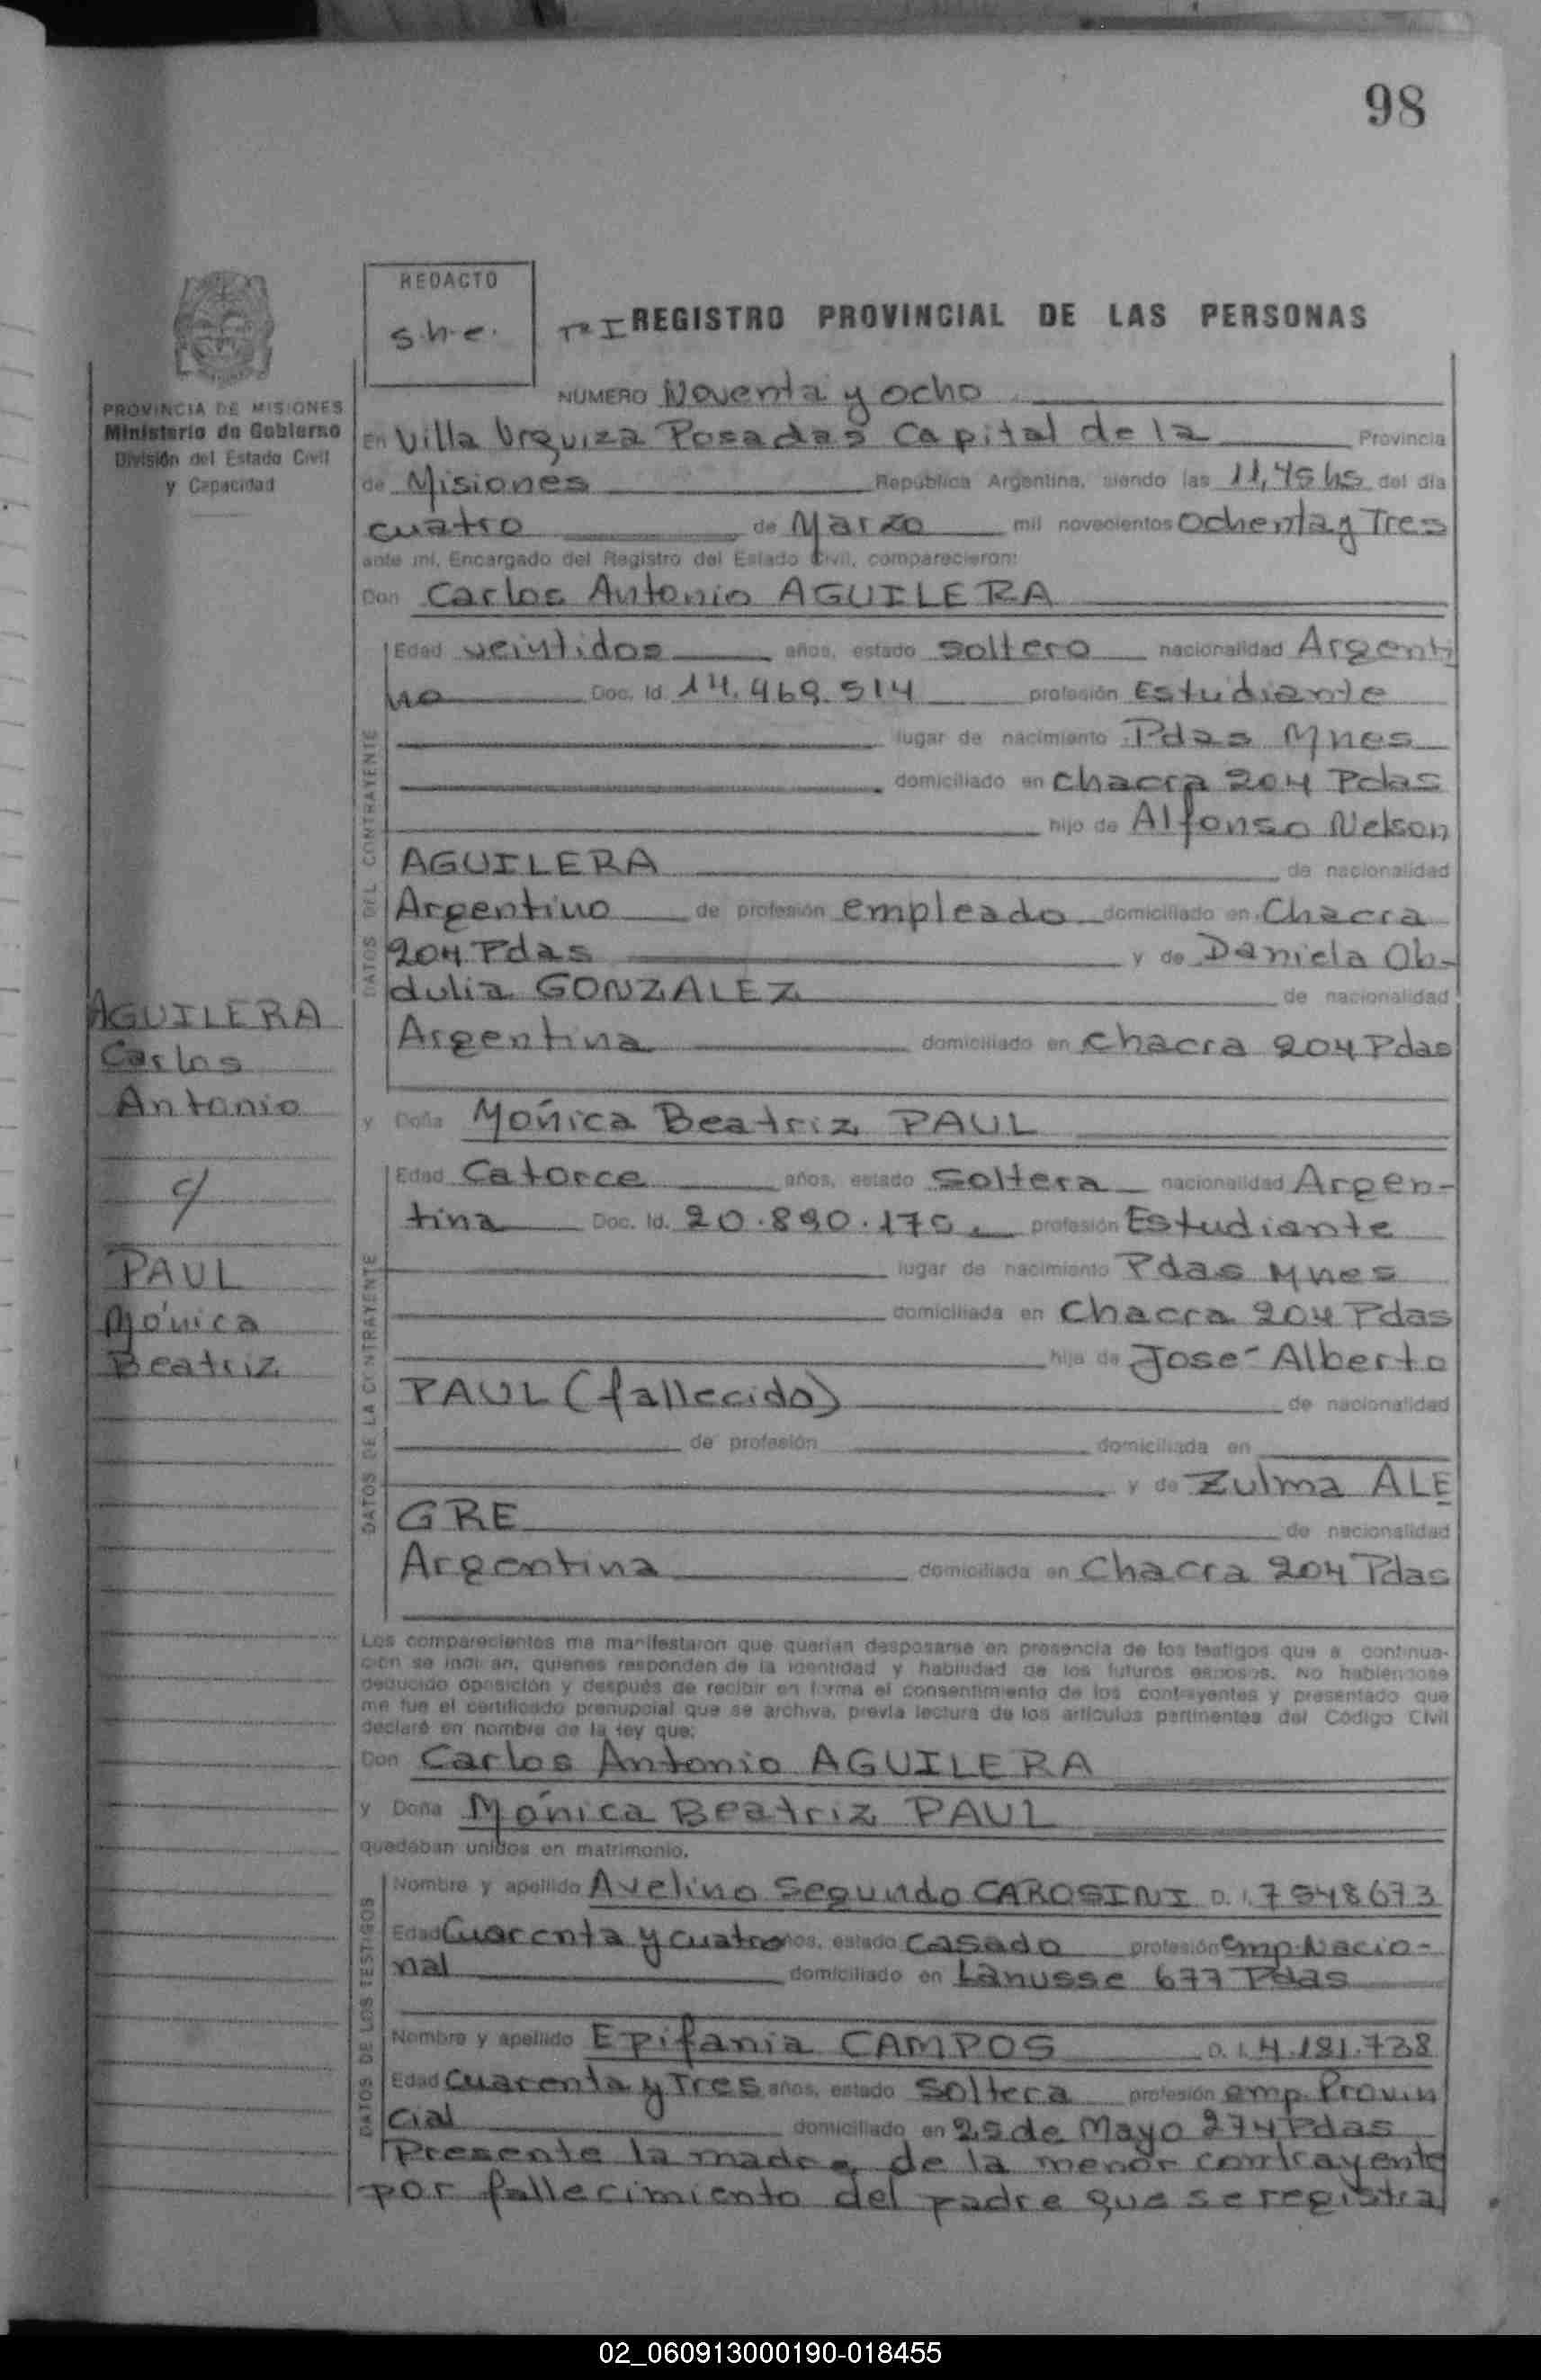 98
REDACTO
s.h.e.
Tº I REGISTRO PROVINCIAL DE LAS PERSONAS
NUMERO Noventa y ocho
PROVINCIA DE MISIONES
Ministerio de Gobierno
División del Estado Civil
y Capacidad
En Villa Urquiza Posadas Capital de la Provincia
de Misiones República Argentina, siendo las 11,45 hs del día
cuatro de Marzo mil novecientos Ochenta y Tres
ante mí, Encargado del Registro del Estado Civil, comparecieron:
Don Carlos Antonio AGUILERA
DATOS DEL CONTRAYENTE
Edad veintidos años, estado soltero nacionalidad Argenti
no Doc. Id. 14.469.514 profesión Estudiante
lugar de nacimiento Pdas Mnes
domiciliado en chacra 204 Pdas
hijo de Alfonso Nelson
AGUILERA de nacionalidad
Argentino de profesión empleado domiciliado en Chacra
204 Pdas y de Daniela Ob-
dulia GONZALEZ de nacionalidad
Argentina domiciliado en chacra 204 Pdas
AGUILERA
Carlos
Antonio
c/
PAUL
Mónica
Beatriz
y Doña Mónica Beatriz PAUL
DATOS DE LA CONTRAYENTE
Edad Catorce años, estado Soltera nacionalidad Argen-
tina Doc. Id. 20.890.175. profesión Estudiante
lugar de nacimiento Pdas Mnes
domiciliada en Chacra 204 Pdas
hija de José Alberto
PAUL (fallecido) de nacionalidad
de profesión domiciliada en
y de Zulma ALE
GRE de nacionalidad
Argentina domiciliada en Chacra 204 Pdas
Los comparecientes me manifestaron que querían desposarse en presencia de los testigos que a continua-
ción se indican, quienes responden de la identidad y habilidad de los futuros esposos. No habiéndose
deducido oposición y después de recibir en forma el consentimiento de los contrayentes y presentado que
me fue el certificado prenupcial que se archiva, previa lectura de los artículos pertinentes del Código Civil
declaré en nombre de la ley que:
Don Carlos Antonio AGUILERA
y Doña Mónica Beatriz PAUL
quedaban unidos en matrimonio.
DATOS DE LOS TESTIGOS
Nombre y apellido Avelino Segundo CAROSINI D. I. 7548673
Edad Cuarenta y cuatro años, estado casado profesión emp. Nacio-
nal domiciliado en Lanusse 677 Pdas
Nombre y apellido Epifania CAMPOS D. I. 4.181.738
Edad cuarenta y Tres años, estado Soltera profesión emp. Provin
cial domiciliado en 25 de Mayo 274 Pdas
Presente la madre de la menor contrayente
por fallecimiento del padre que se registra
02_060913000190-018455